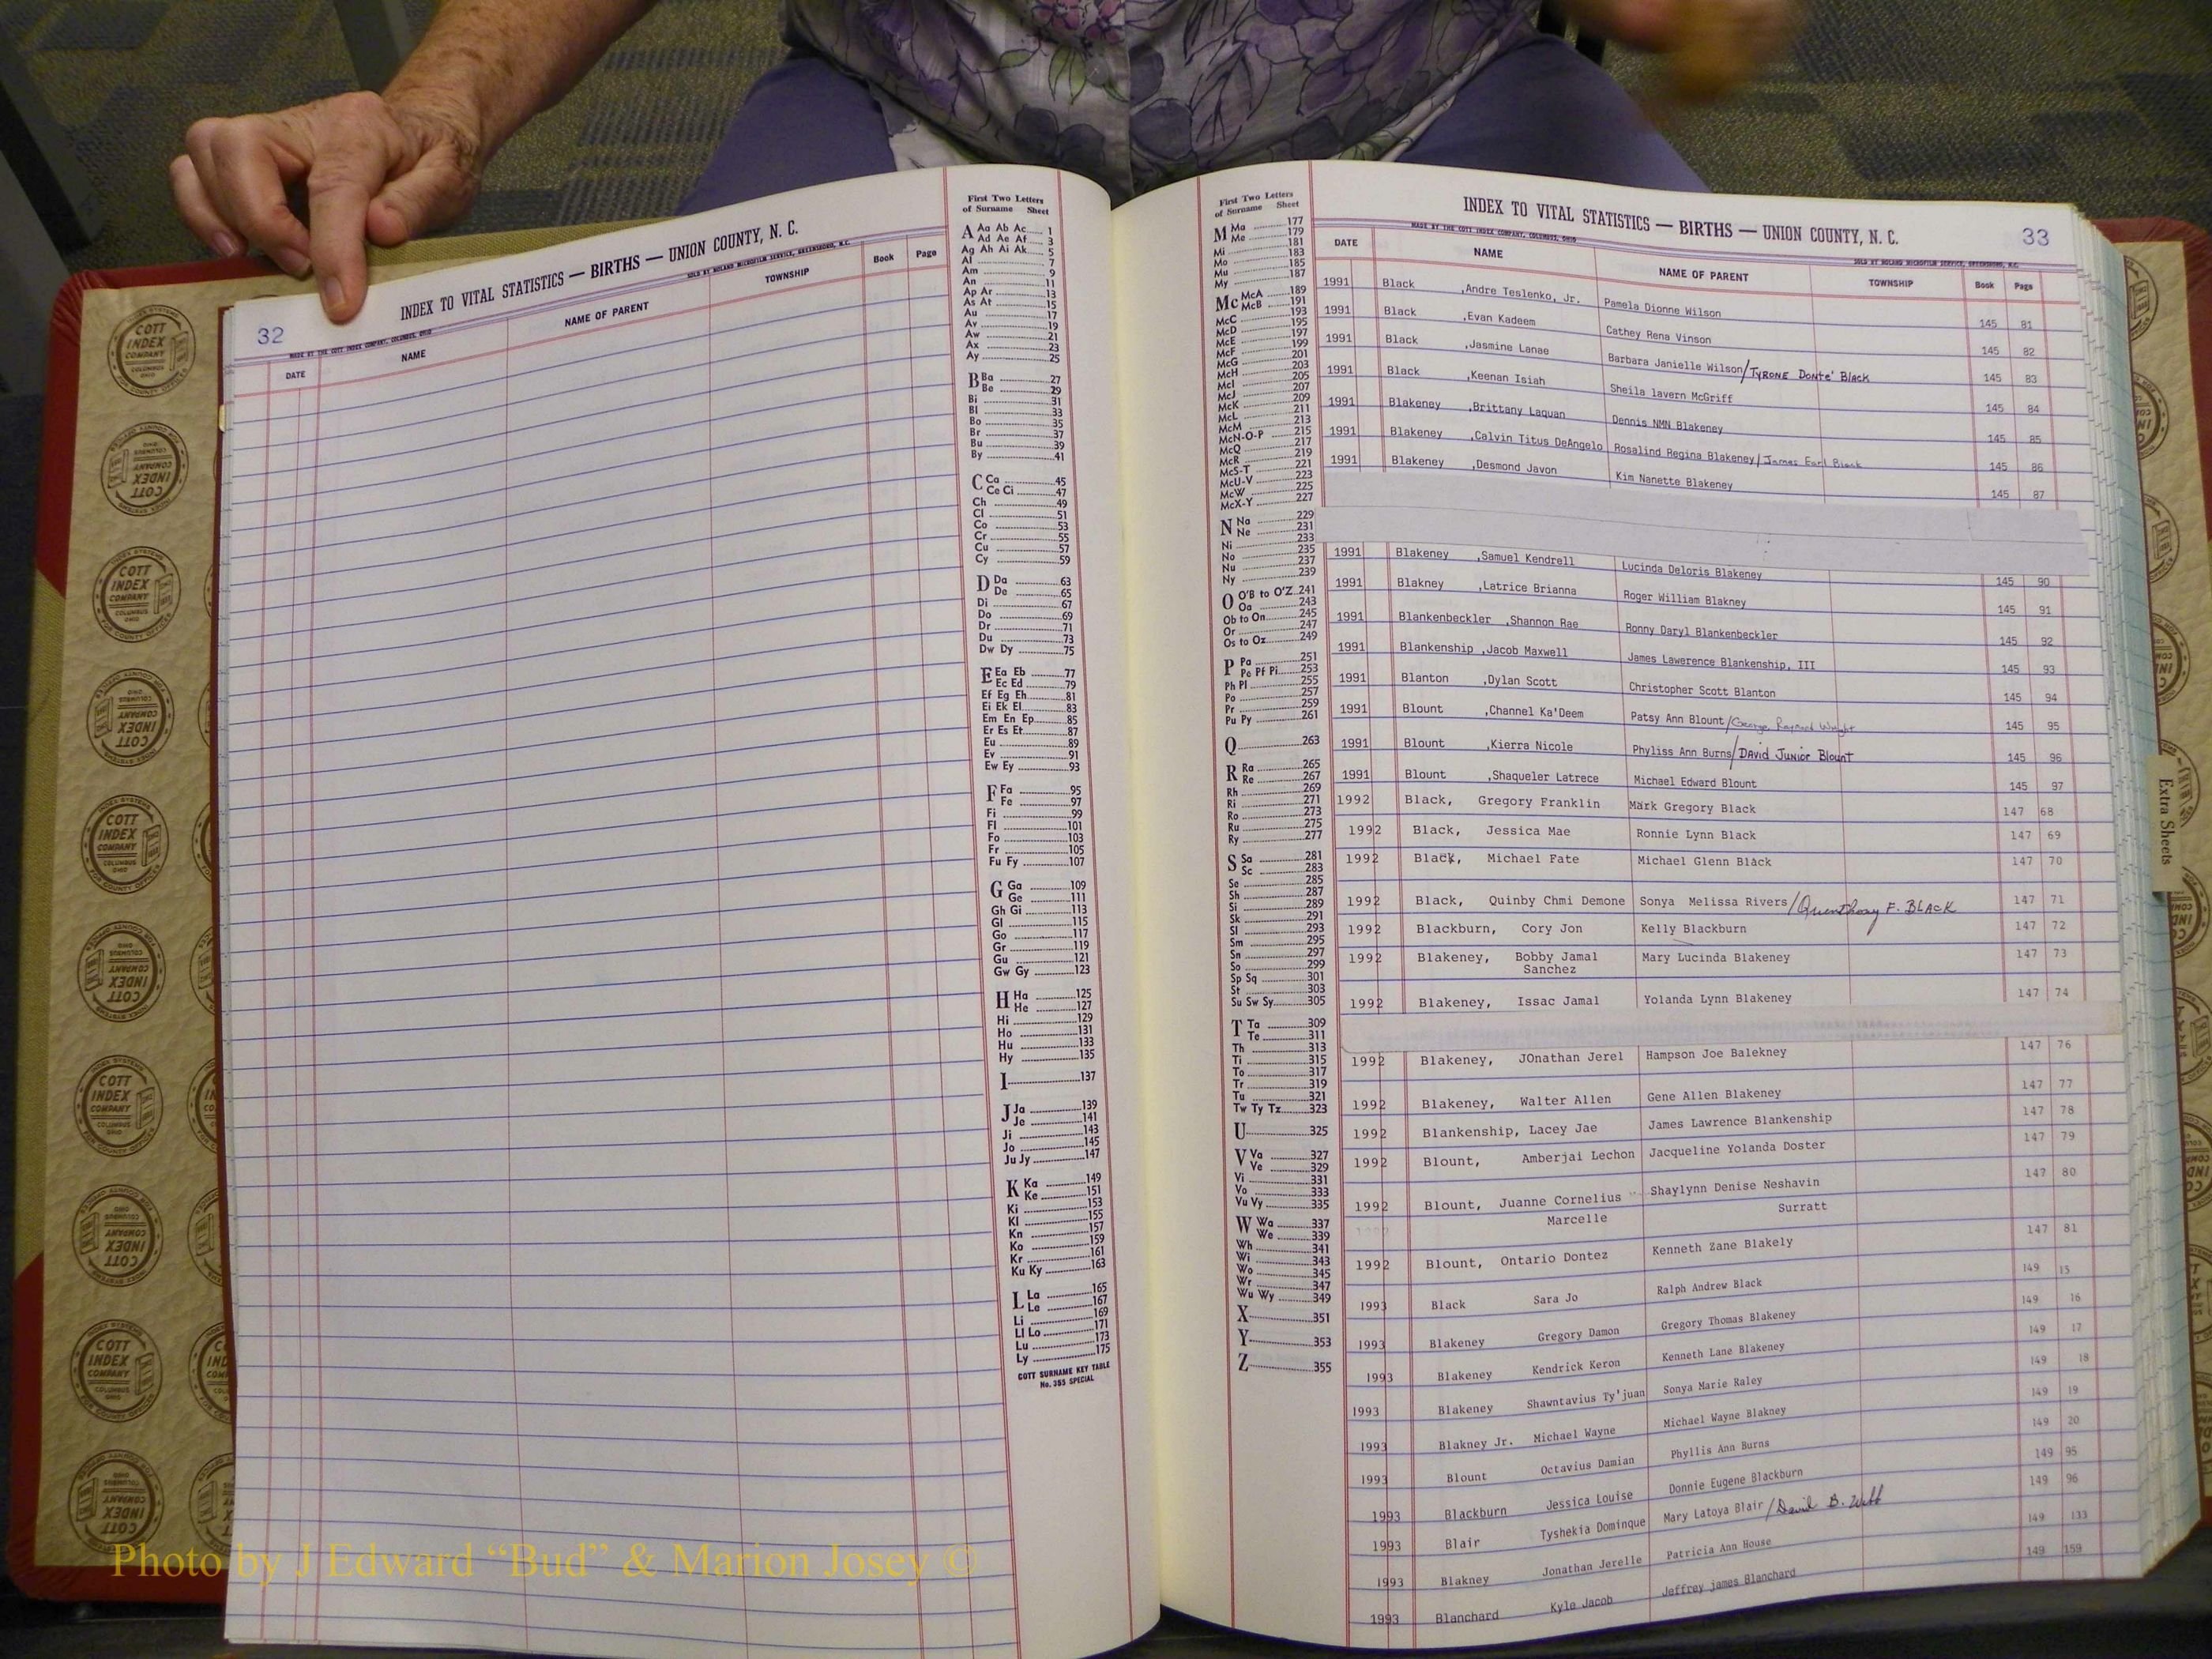 32
INDEX TO VITAL STATISTICS — BIRTHS — UNION COUNTY, N. C.
MADE BY THE COTT INDEX COMPANY, COLUMBUS, OHIO
SOLD BY NOLAND MICROFILM SERVICE, GREENSBORO, N.C.
DATE NAME NAME OF PARENT TOWNSHIP Book Page
First Two Letters
of Surname Sheet
A Aa Ab Ac 1
Ad Ae Af 3
Ag Ah Ai Ak 5
Al 7
Am 9
An 11
Ap Ar 13
As At 15
Au 17
Av 19
Aw 21
Ax 23
Ay 25
B Ba 27
Be 29
Bi 31
Bl 33
Bo 35
Br 37
Bu 39
By 41
C Ca 45
Ce Ci 47
Ch 49
Cl 51
Co 53
Cr 55
Cu 57
Cy 59
D Da 63
De 65
Di 67
Do 69
Dr 71
Du 73
Dw Dy 75
E Ea Eb 77
Ec Ed 79
Ef Eg Eh 81
Ei Ek El 83
Em En Ep 85
Er Es Et 87
Eu 89
Ev 91
Ew Ey 93
F Fa 95
Fe 97
Fi 99
Fl 101
Fo 103
Fr 105
Fu Fy 107
G Ga 109
Ge 111
Gh Gi 113
Gl 115
Go 117
Gr 119
Gu 121
Gw Gy 123
H Ha 125
He 127
Hi 129
Ho 131
Hu 133
Hy 135
I 137
J Ja 139
Je 141
Ji 143
Jo 145
Ju Jy 147
K Ka 149
Ke 151
Ki 153
Kl 155
Kn 157
Ko 159
Kr 161
Ku Ky 163
L La 165
Le 167
Li 169
Ll Lo 171
Lu 173
Ly 175
COTT SURNAME KEY TABLE
No. 355 SPECIAL
First Two Letters
of Surname Sheet
M Ma 177
Me 179
Mi 181
Mo 183
Mu 185
My 187
Mc McA 189
McB 191
McC 193
McD 195
McE 197
McF 199
McG 201
McH 203
McI 205
McJ 207
McK 209
McL 211
McM 213
McN-O-P 215
McQ 217
McR 219
McS-T 221
McU-V 223
McW 225
McX-Y 227
N Na 229
Ne 231
Ni 233
No 235
Nu 237
Ny 239
O O'B to O'Z 241
Oa 243
Ob to On 245
Or 247
Os to Oz 249
P Pa 251
Pe Pf Pi 253
Ph Pl 255
Po 257
Pr 259
Pu Py 261
Q 263
R Ra 265
Re 267
Rh 269
Ri 271
Ro 273
Ru 275
Ry 277
S Sa 281
Sc 283
Se 285
Sh 287
Si 289
Sk 291
Sl 293
Sm 295
Sn 297
So 299
Sp Sq 301
St 303
Su Sw Sy 305
T Ta 309
Te 311
Th 313
Ti 315
To 317
Tr 319
Tu 321
Tw Ty Tz 323
U 325
V Va 327
Ve 329
Vi 331
Vo 333
Vu Vy 335
W Wa 337
We 339
Wh 341
Wi 343
Wo 345
Wr 347
Wu Wy 349
X 351
Y 353
Z 355
INDEX TO VITAL STATISTICS — BIRTHS — UNION COUNTY, N. C.
33
MADE BY THE COTT INDEX COMPANY, COLUMBUS, OHIO
SOLD BY NOLAND MICROFILM SERVICE, GREENSBORO, N.C.
DATE NAME NAME OF PARENT TOWNSHIP Book Page
1991 Black ,Andre Teslenko, Jr. Pamela Dionne Wilson 145 81
1991 Black ,Evan Kadeem Cathey Rena Vinson 145 82
1991 Black ,Jasmine Lanae Barbara Janielle Wilson/TYRONE DONTE' BLACK 145 83
1991 Black ,Keenan Isiah Sheila lavern McGriff 145 84
1991 Blakeney ,Brittany Laquan Dennis NMN Blakeney 145 85
1991 Blakeney ,Calvin Titus DeAngelo Rosalind Regina Blakeney/James Earl Black 145 86
1991 Blakeney ,Desmond Javon Kim Nanette Blakeney 145 87
1991 Blakeney ,Samuel Kendrell Lucinda Deloris Blakeney 145 90
1991 Blakney ,Latrice Brianna Roger William Blakney 145 91
1991 Blankenbeckler ,Shannon Rae Ronny Daryl Blankenbeckler 145 92
1991 Blankenship ,Jacob Maxwell James Lawerence Blankenship, III 145 93
1991 Blanton ,Dylan Scott Christopher Scott Blanton 145 94
1991 Blount ,Channel Ka'Deem Patsy Ann Blount/George Raymond Wright 145 95
1991 Blount ,Kierra Nicole Phyliss Ann Burns/DAVID JUNIOR Blount 145 96
1991 Blount ,Shaqueler Latrece Michael Edward Blount 145 97
1992 Black, Gregory Franklin Mark Gregory Black 147 68
1992 Black, Jessica Mae Ronnie Lynn Black 147 69
1992 Black, Michael Fate Michael Glenn Black 147 70
1992 Black, Quinby Chmi Demone Sonya Melissa Rivers/Quenthony F. BLACK 147 71
1992 Blackburn, Cory Jon Kelly Blackburn 147 72
1992 Blakeney, Bobby Jamal Mary Lucinda Blakeney 147 73
Sanchez
1992 Blakeney, Issac Jamal Yolanda Lynn Blakeney 147 74
1992 Blakeney, JOnathan Jerel Hampson Joe Balekney 147 76
1992 Blakeney, Walter Allen Gene Allen Blakeney 147 77
1992 Blankenship, Lacey Jae James Lawrence Blankenship 147 78
1992 Blount, Amberjai Lechon Jacqueline Yolanda Doster 147 79
1992 Blount, Juanne Cornelius Shaylynn Denise Neshavin 147 80
Marcelle Surratt
1992 Blount, Ontario Dontez Kenneth Zane Blakely 147 81
1993 Black Sara Jo Ralph Andrew Black 149 15
1993 Blakeney Gregory Damon Gregory Thomas Blakeney 149 16
1993 Blakeney Kendrick Keron Kenneth Lane Blakeney 149 17
1993 Blakeney Shawntavius Ty'juan Sonya Marie Raley 149 18
1993 Blakney Jr. Michael Wayne Michael Wayne Blakney 149 19
1993 Blount Octavius Damian Phyllis Ann Burns 149 20
1993 Blackburn Jessica Louise Donnie Eugene Blackburn 149 95
1993 Blair Tyshekia Dominque Mary Latoya Blair/David B. Webb 149 96
1993 Blakney Jonathan Jerelle Patricia Ann House 149 133
1993 Blanchard Kyle Jacob Jeffrey james Blanchard 149 159
Extra Sheets
COTT INDEX COMPANY
COLUMBUS OHIO
Photo by J Edward “Bud” & Marion Josey ©